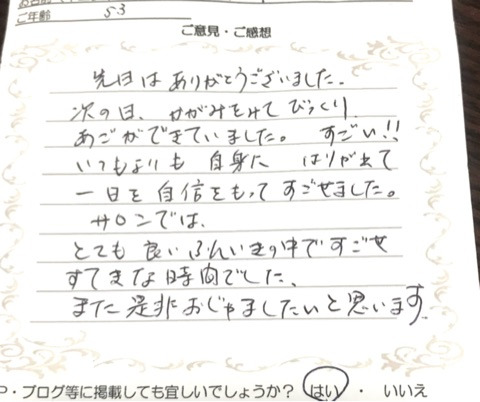 ご年齢 53
ご意見・ご感想
先日は ありがとうございました.
次の日、かがみをみて びっくり
あごができていました。 すごい!!
いつもよりも 自身に はりが出て
一日を 自信をもって すごせました。
サロンでは、
とても 良い ふんいきの中で すごせ
すてきな時間でした、
また 是非 おじゃましたいと思います.
P・ブログ等に掲載しても宜しいでしょうか? はい ・ いいえ